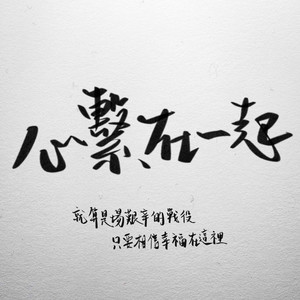 心繫在一起
就算是場艱辛的戰役
只要相信幸福在這裡